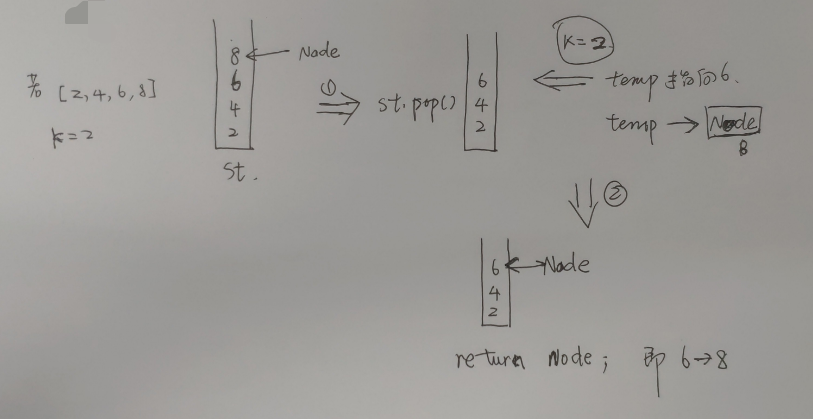 如 [2,4,6,8]
k=2
8 ← Node
6
4
2
st.
① ⇒
st.pop()
6
4
2
k=2
⇐ temp 指向6.
temp → Node
8
⇓ ②
6 ↔ Node
4
2
return Node; 即 6→8